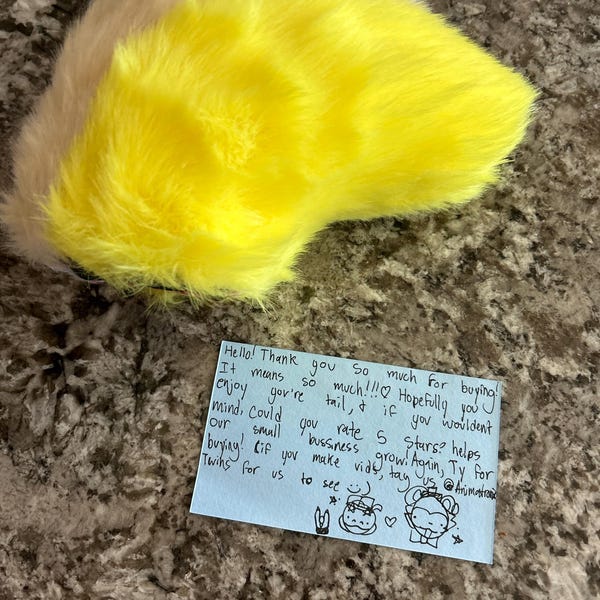 Hello! Thank you so much for buying!
It means so much!!!♡ Hopefully you
enjoy you're tail, & if you wouldent
mind, Could you rate 5 stars? helps
our small bussness grow! Again, Ty for
buying! (if you make vids, tag us @Animatronic
Twins for us to see :)